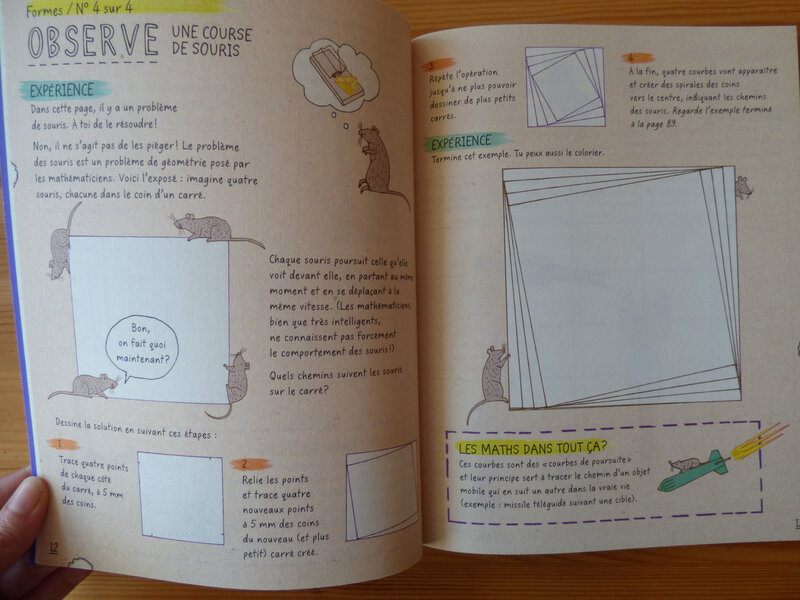 Formes / N° 4 sur 4
OBSERVE UNE COURSE
DE SOURIS
EXPÉRIENCE
Dans cette page, il y a un problème
de souris. À toi de le résoudre!
Non, il ne s'agit pas de les piéger! Le problème
des souris est un problème de géométrie posé par
les mathématiciens. Voici l'exposé : imagine quatre
souris, chacune dans le coin d'un carré.
Bon,
on fait quoi
maintenant?
Chaque souris poursuit celle qu'elle
voit devant elle, en partant au même
moment et en se déplaçant à la
même vitesse. (Les mathématiciens,
bien que très intelligents,
ne connaissent pas forcément
le comportement des souris!)
Quels chemins suivent les souris
sur le carré?
Dessine la solution en suivant ces étapes :
1
Trace quatre points
de chaque côté
du carré, à 5 mm
des coins.
2
Relie les points
et trace quatre
nouveaux points
à 5 mm des coins
du nouveau (et plus
petit) carré créé.
12
3
Répète l'opération
jusqu'à ne plus pouvoir
dessiner de plus petits
carrés.
4
À la fin, quatre courbes vont apparaître
et créer des spirales des coins
vers le centre, indiquant les chemins
des souris. Regarde l'exemple terminé
à la page 89.
EXPÉRIENCE
Termine cet exemple. Tu peux aussi le colorier.
LES MATHS DANS TOUT ÇA?
Ces courbes sont des «courbes de poursuite»
et leur principe sert à tracer le chemin d'un objet
mobile qui en suit un autre dans la vraie vie
(exemple : missile téléguidé suivant une cible).